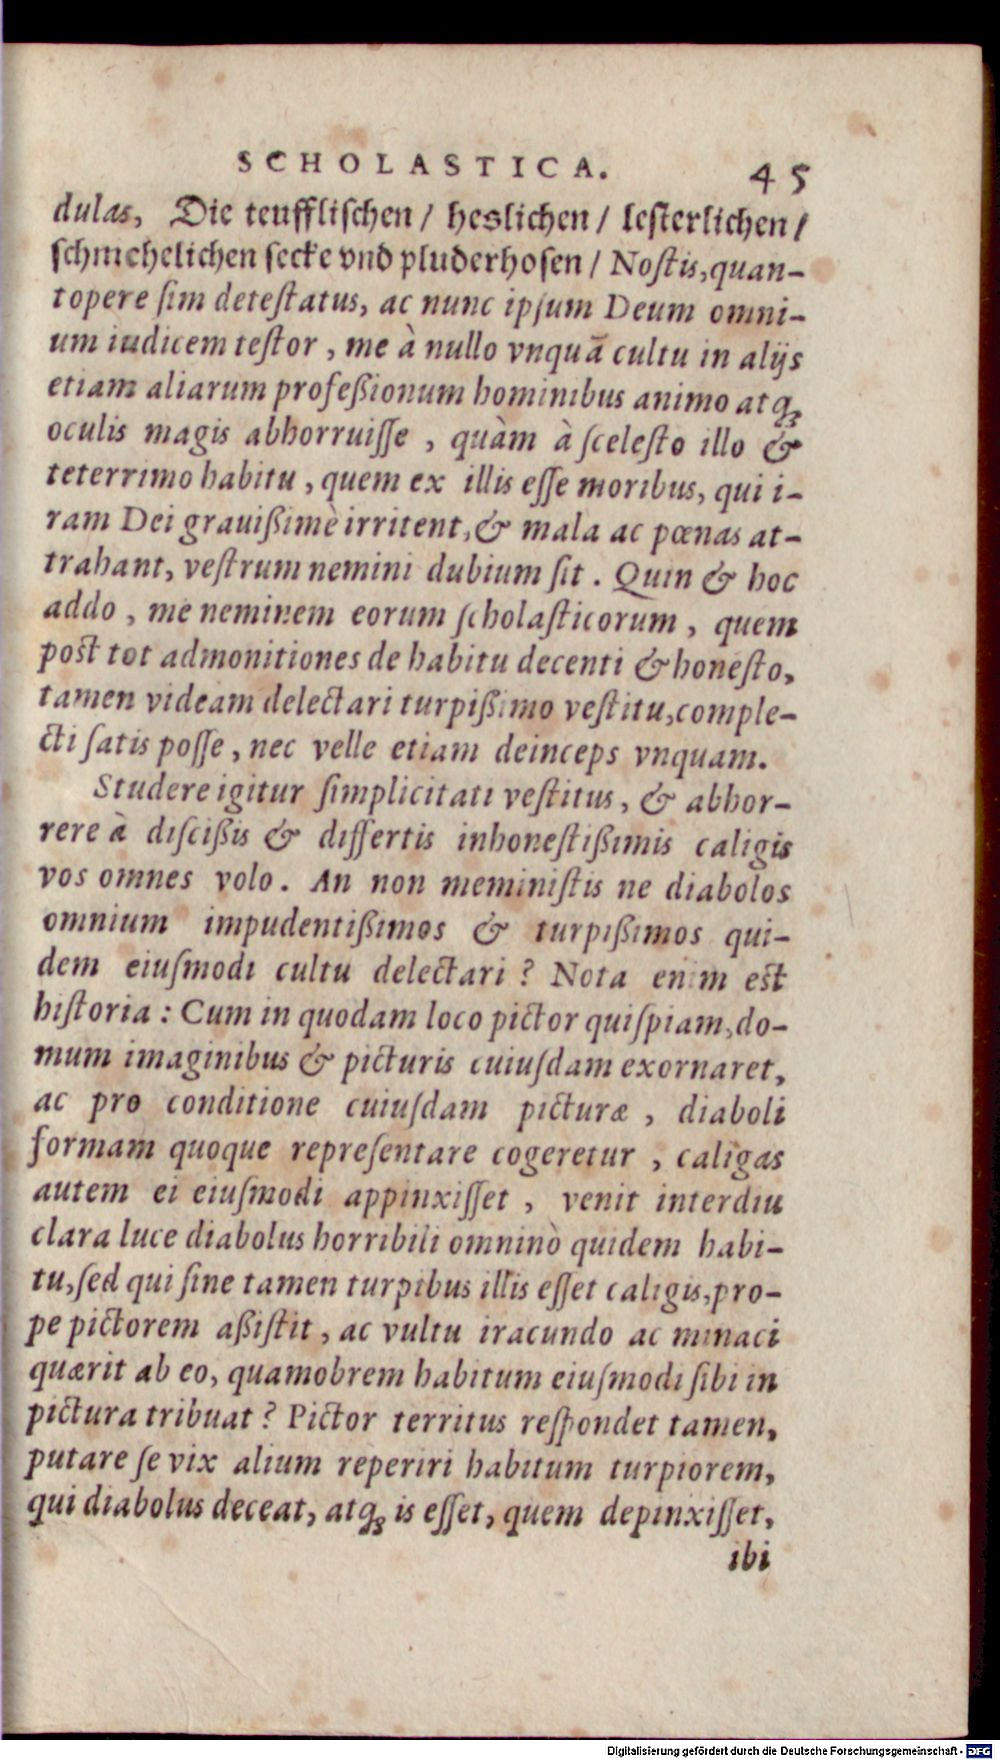 SCHOLASTICA. 45
dulas, Die teufflischen / heslichen / lesterlichen /
schmehelichen secke vnd pluderhosen / Noſtis, quan-
topere ſim deteſtatus, ac nunc ipſum Deum omni-
um iudicem teſtor, me à nullo vnquā cultu in alijs
etiam aliarum profeßionum hominibus animo atq́₃
oculis magis abhorruiſſe, quàm à ſceleſto illo &
teterrimo habitu, quem ex illis eſſe moribus, qui i-
ram Dei grauißimè irritent, & mala ac pœnas at-
trahant, veſtrum nemini dubium ſit. Quin & hoc
addo, me neminem eorum ſcholaſticorum, quem
poſt tot admonitiones de habitu decenti & honeſto,
tamen videam delectari turpißimo veſtitu, comple-
cti ſatis poſſe, nec velle etiam deinceps vnquam.
Studere igitur ſimplicitati veſtitus, & abhor-
rere à diſcißis & differtis inhoneſtißimis caligis
vos omnes volo. An non meminiſtis ne diabolos
omnium impudentißimos & turpißimos qui-
dem eiuſmodi cultu delectari? Nota enim eſt
hiſtoria: Cum in quodam loco pictor quiſpiam, do-
mum imaginibus & picturis cuiuſdam exornaret,
ac pro conditione cuiuſdam picturæ, diaboli
formam quoque repreſentare cogeretur, caligas
autem ei eiuſmodi appinxiſſet, venit interdiu
clara luce diabolus horribili omninò quidem habi-
tu, ſed qui ſine tamen turpibus illis eſſet caligis, pro-
pe pictorem aßiſtit, ac vultu iracundo ac minaci
quærit ab eo, quamobrem habitum eiuſmodi ſibi in
pictura tribuat? Pictor territus reſpondet tamen,
putare ſe vix alium reperiri habitum turpiorem,
qui diabolus deceat, atq₃ is eſſet, quem depinxiſſet,
ibi
Digitalisierung gefördert durch die Deutsche Forschungsgemeinschaft - DFG